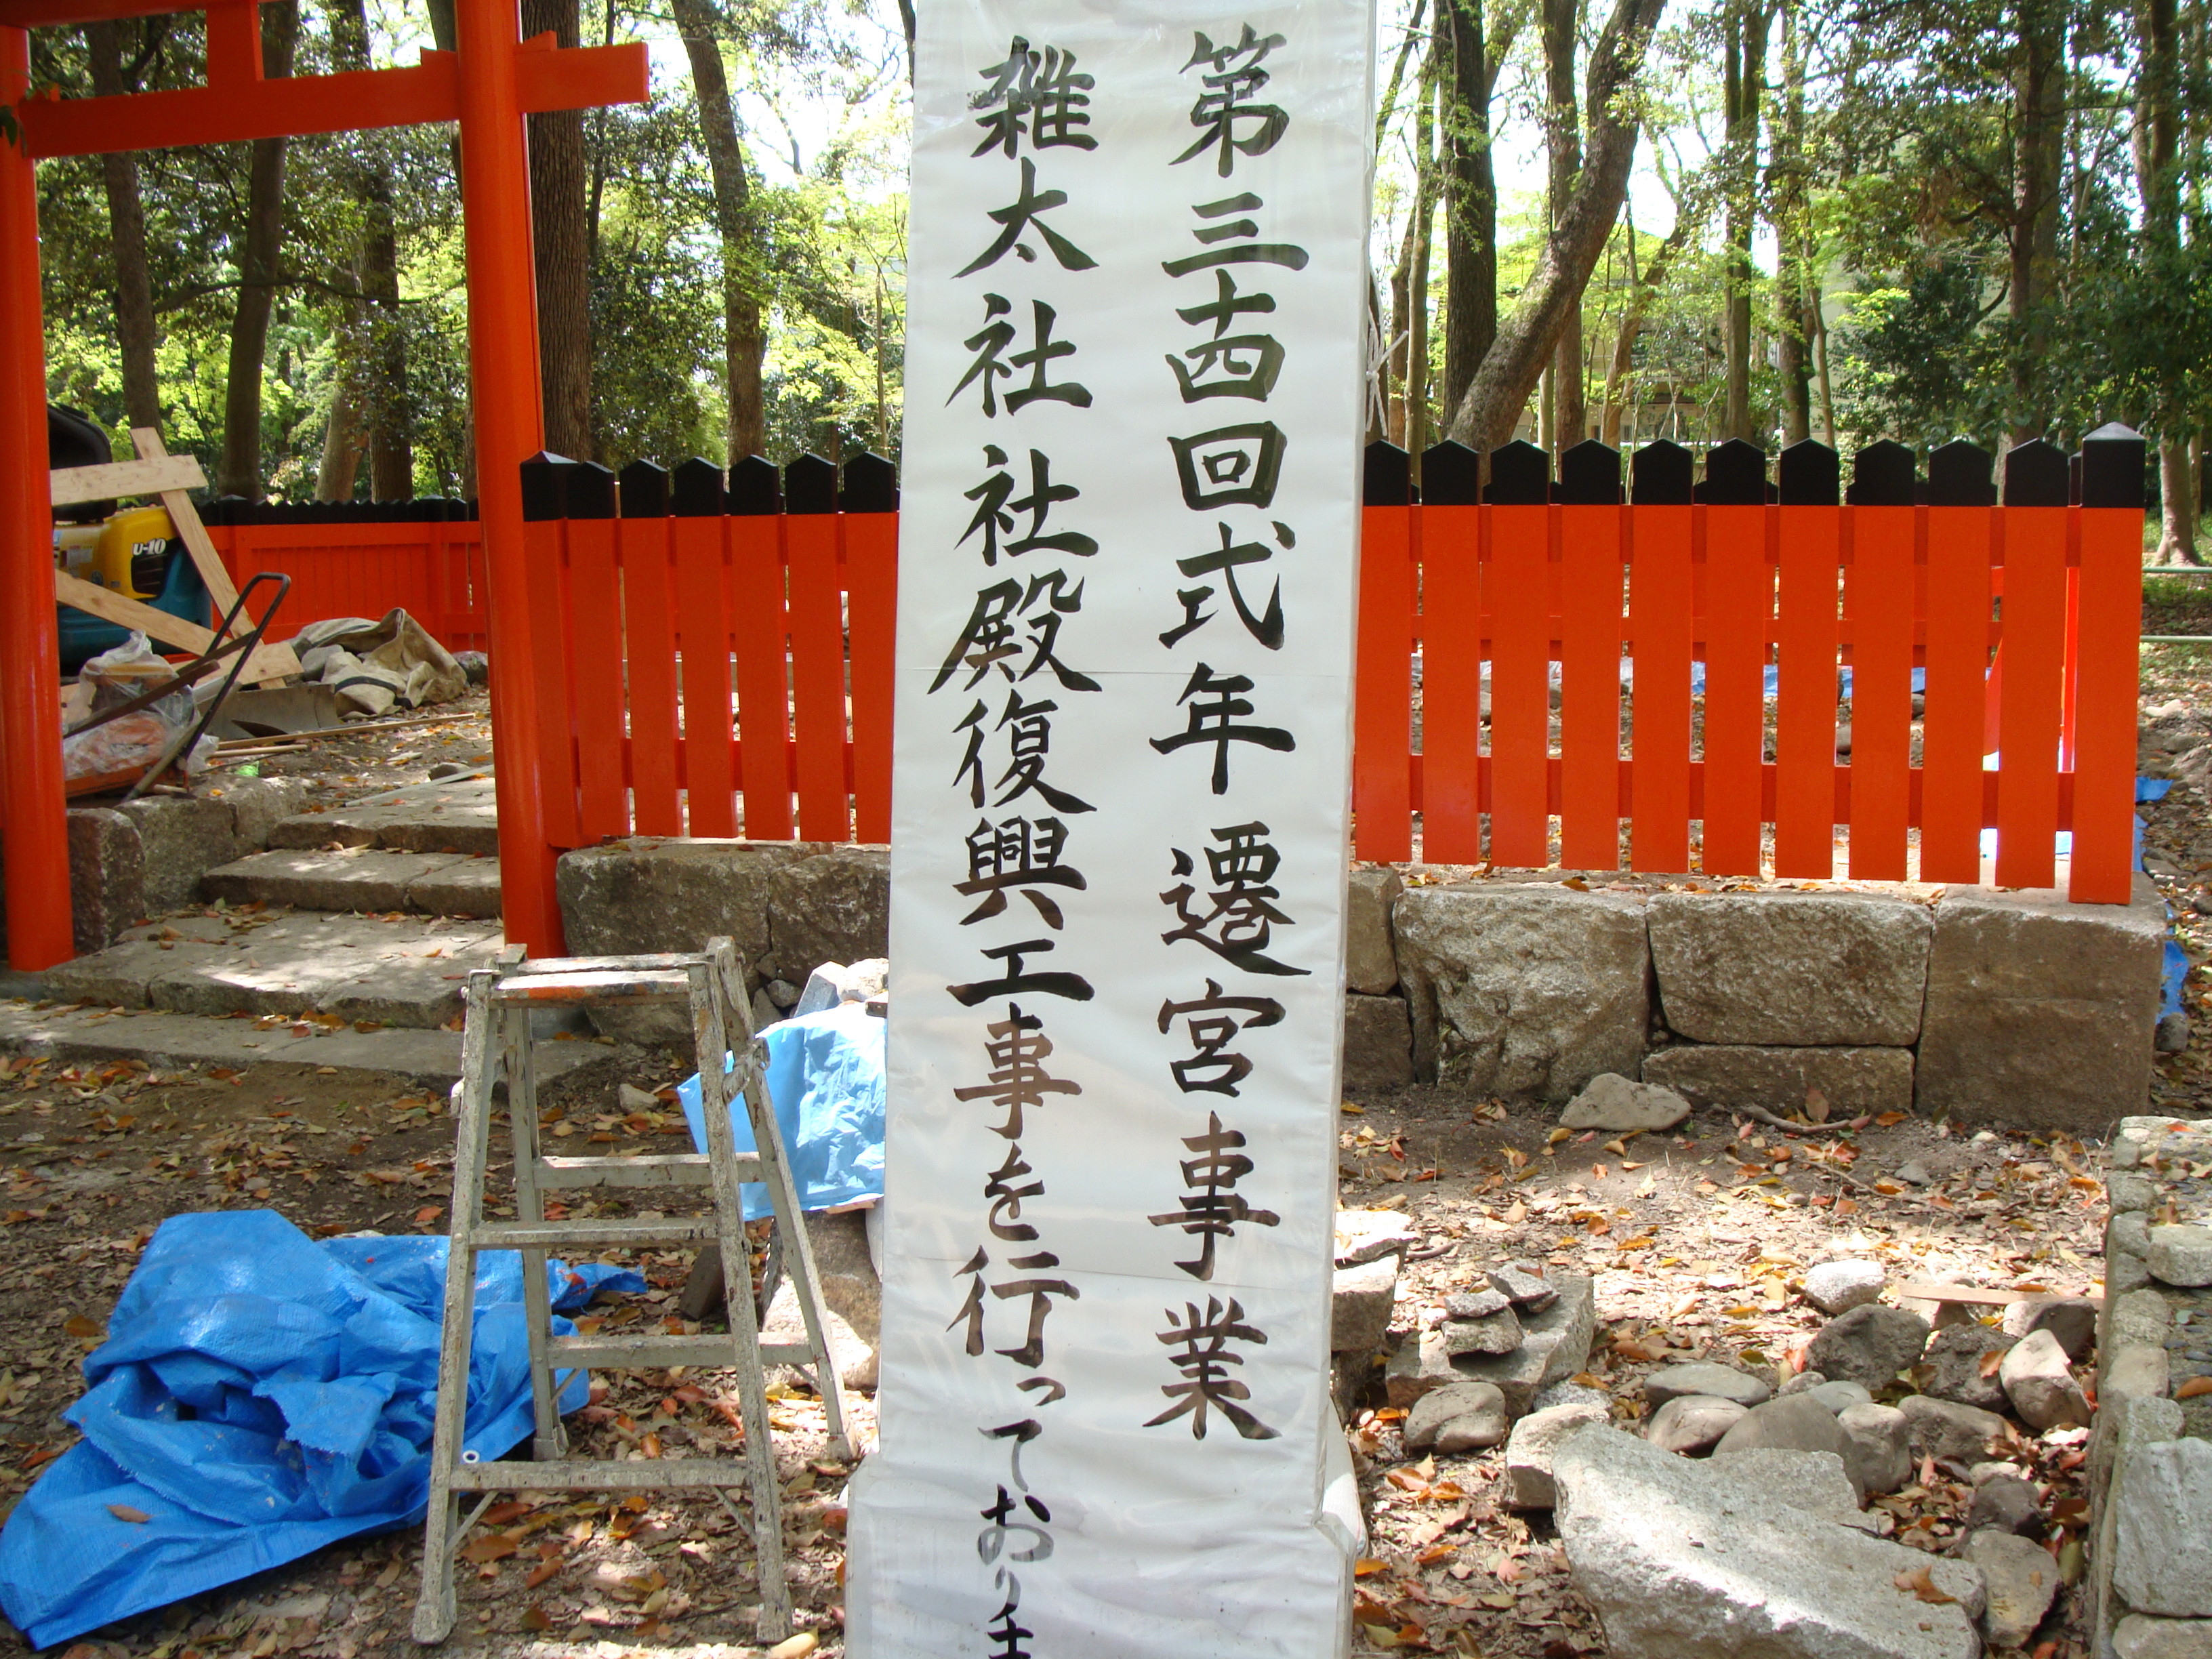 第三十四回式年遷宮事業
雑太社社殿復興工事を行っておりま
U-10